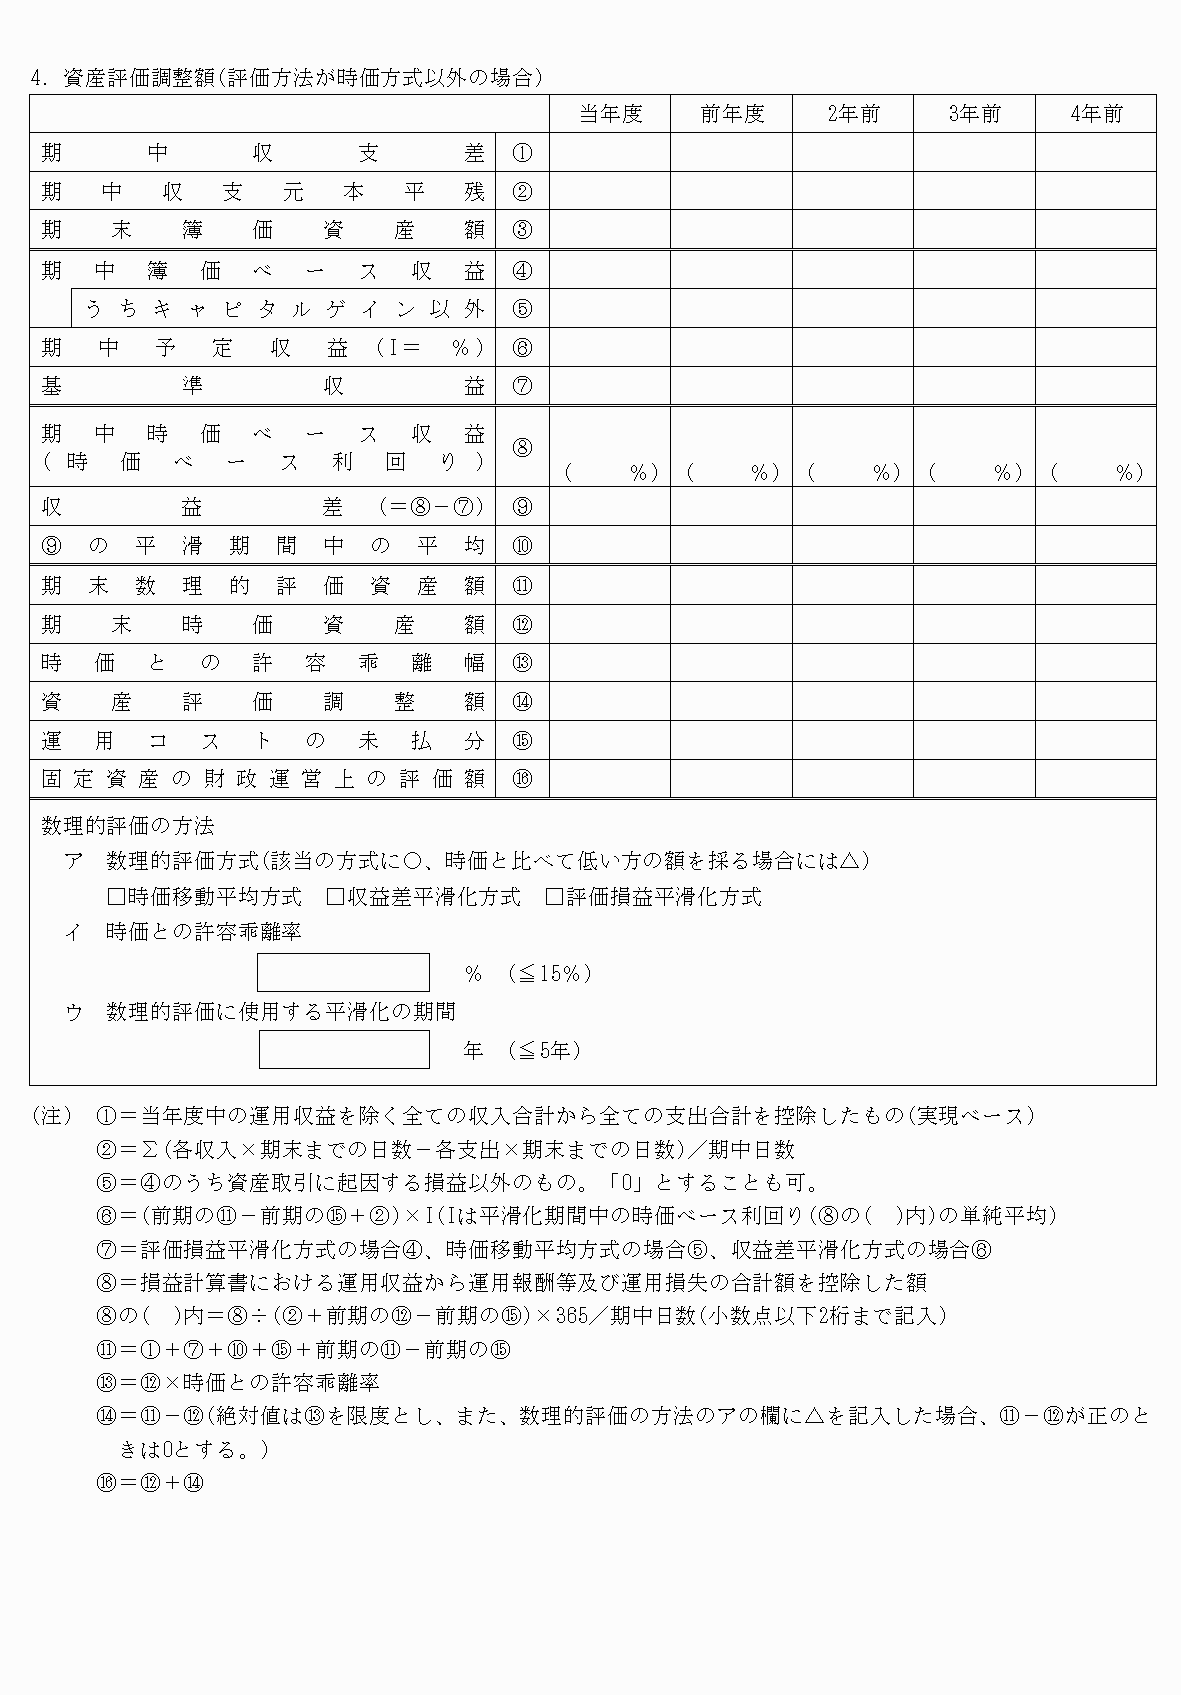 4. 資産評価調整額(評価方法が時価方式以外の場合)
当年度 前年度 2年前 3年前 4年前
期中収支差 ①
期中収支元本平残 ②
期末簿価資産額 ③
期中簿価ベース収益 ④
うちキャピタルゲイン以外 ⑤
期中予定収益(I＝ %) ⑥
基準収益 ⑦
期中時価ベース収益
(時価ベース利回り) ⑧ ( %) ( %) ( %) ( %) ( %)
収益差 (＝⑧－⑦) ⑨
⑨の平滑期間中の平均 ⑩
期末数理的評価資産額 ⑪
期末時価資産額 ⑫
時価との許容乖離幅 ⑬
資産評価調整額 ⑭
運用コストの未払分 ⑮
固定資産の財政運営上の評価額 ⑯
数理的評価の方法
ア 数理的評価方式(該当の方式に○、時価と比べて低い方の額を採る場合には△)
□時価移動平均方式 □収益差平滑化方式 □評価損益平滑化方式
イ 時価との許容乖離率
% (≦15%)
ウ 数理的評価に使用する平滑化の期間
年 (≦5年)
(注) ①＝当年度中の運用収益を除く全ての収入合計から全ての支出合計を控除したもの(実現ベース)
②＝Σ(各収入×期末までの日数－各支出×期末までの日数)／期中日数
⑤＝④のうち資産取引に起因する損益以外のもの。「0」とすることも可。
⑥＝(前期の⑪－前期の⑮＋②)×I(Iは平滑化期間中の時価ベース利回り(⑧の( )内)の単純平均)
⑦＝評価損益平滑化方式の場合④、時価移動平均方式の場合⑤、収益差平滑化方式の場合⑥
⑧＝損益計算書における運用収益から運用報酬等及び運用損失の合計額を控除した額
⑧の( )内＝⑧÷(②＋前期の⑫－前期の⑮)×365／期中日数(小数点以下2桁まで記入)
⑪＝①＋⑦＋⑩＋⑮＋前期の⑪－前期の⑮
⑬＝⑫×時価との許容乖離率
⑭＝⑪－⑫(絶対値は⑬を限度とし、また、数理的評価の方法のアの欄に△を記入した場合、⑪－⑫が正のと
きは0とする。)
⑯＝⑫＋⑭